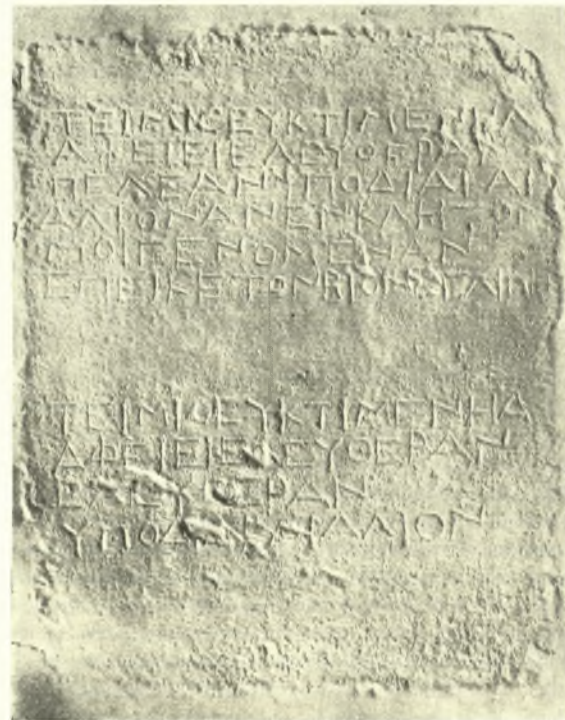 ΤΕΙΜΙϹΕΥΚΤΙΜΕΝΗΑ
ΑΦΕΙΕΙΕΛΕΥΘΕΡΑΝ
ΠΕΛΕΑΝΥΠΟΔΙΑΓΑΝ
ΑΛΙΟΝΑΝΕΝΚΛΗΤΟΝ
ΜΟΙΓΕΝΟΜΕΝΑΝ
ΕΠΕΙΚΕΤΟΝΒΙΟΝΕΓΛΙΠ
ΤΕΙΜΙϹΕΥΚΤΙΜΕΝΗΑ
ΑΦΕΙΕΙΕΛΕΥΘΕΡΑΝ
ΕΛΕΥΘΕΡΑΝ
ΥΠΟΔΙΑΓΑΝΑΛΙΟΝ